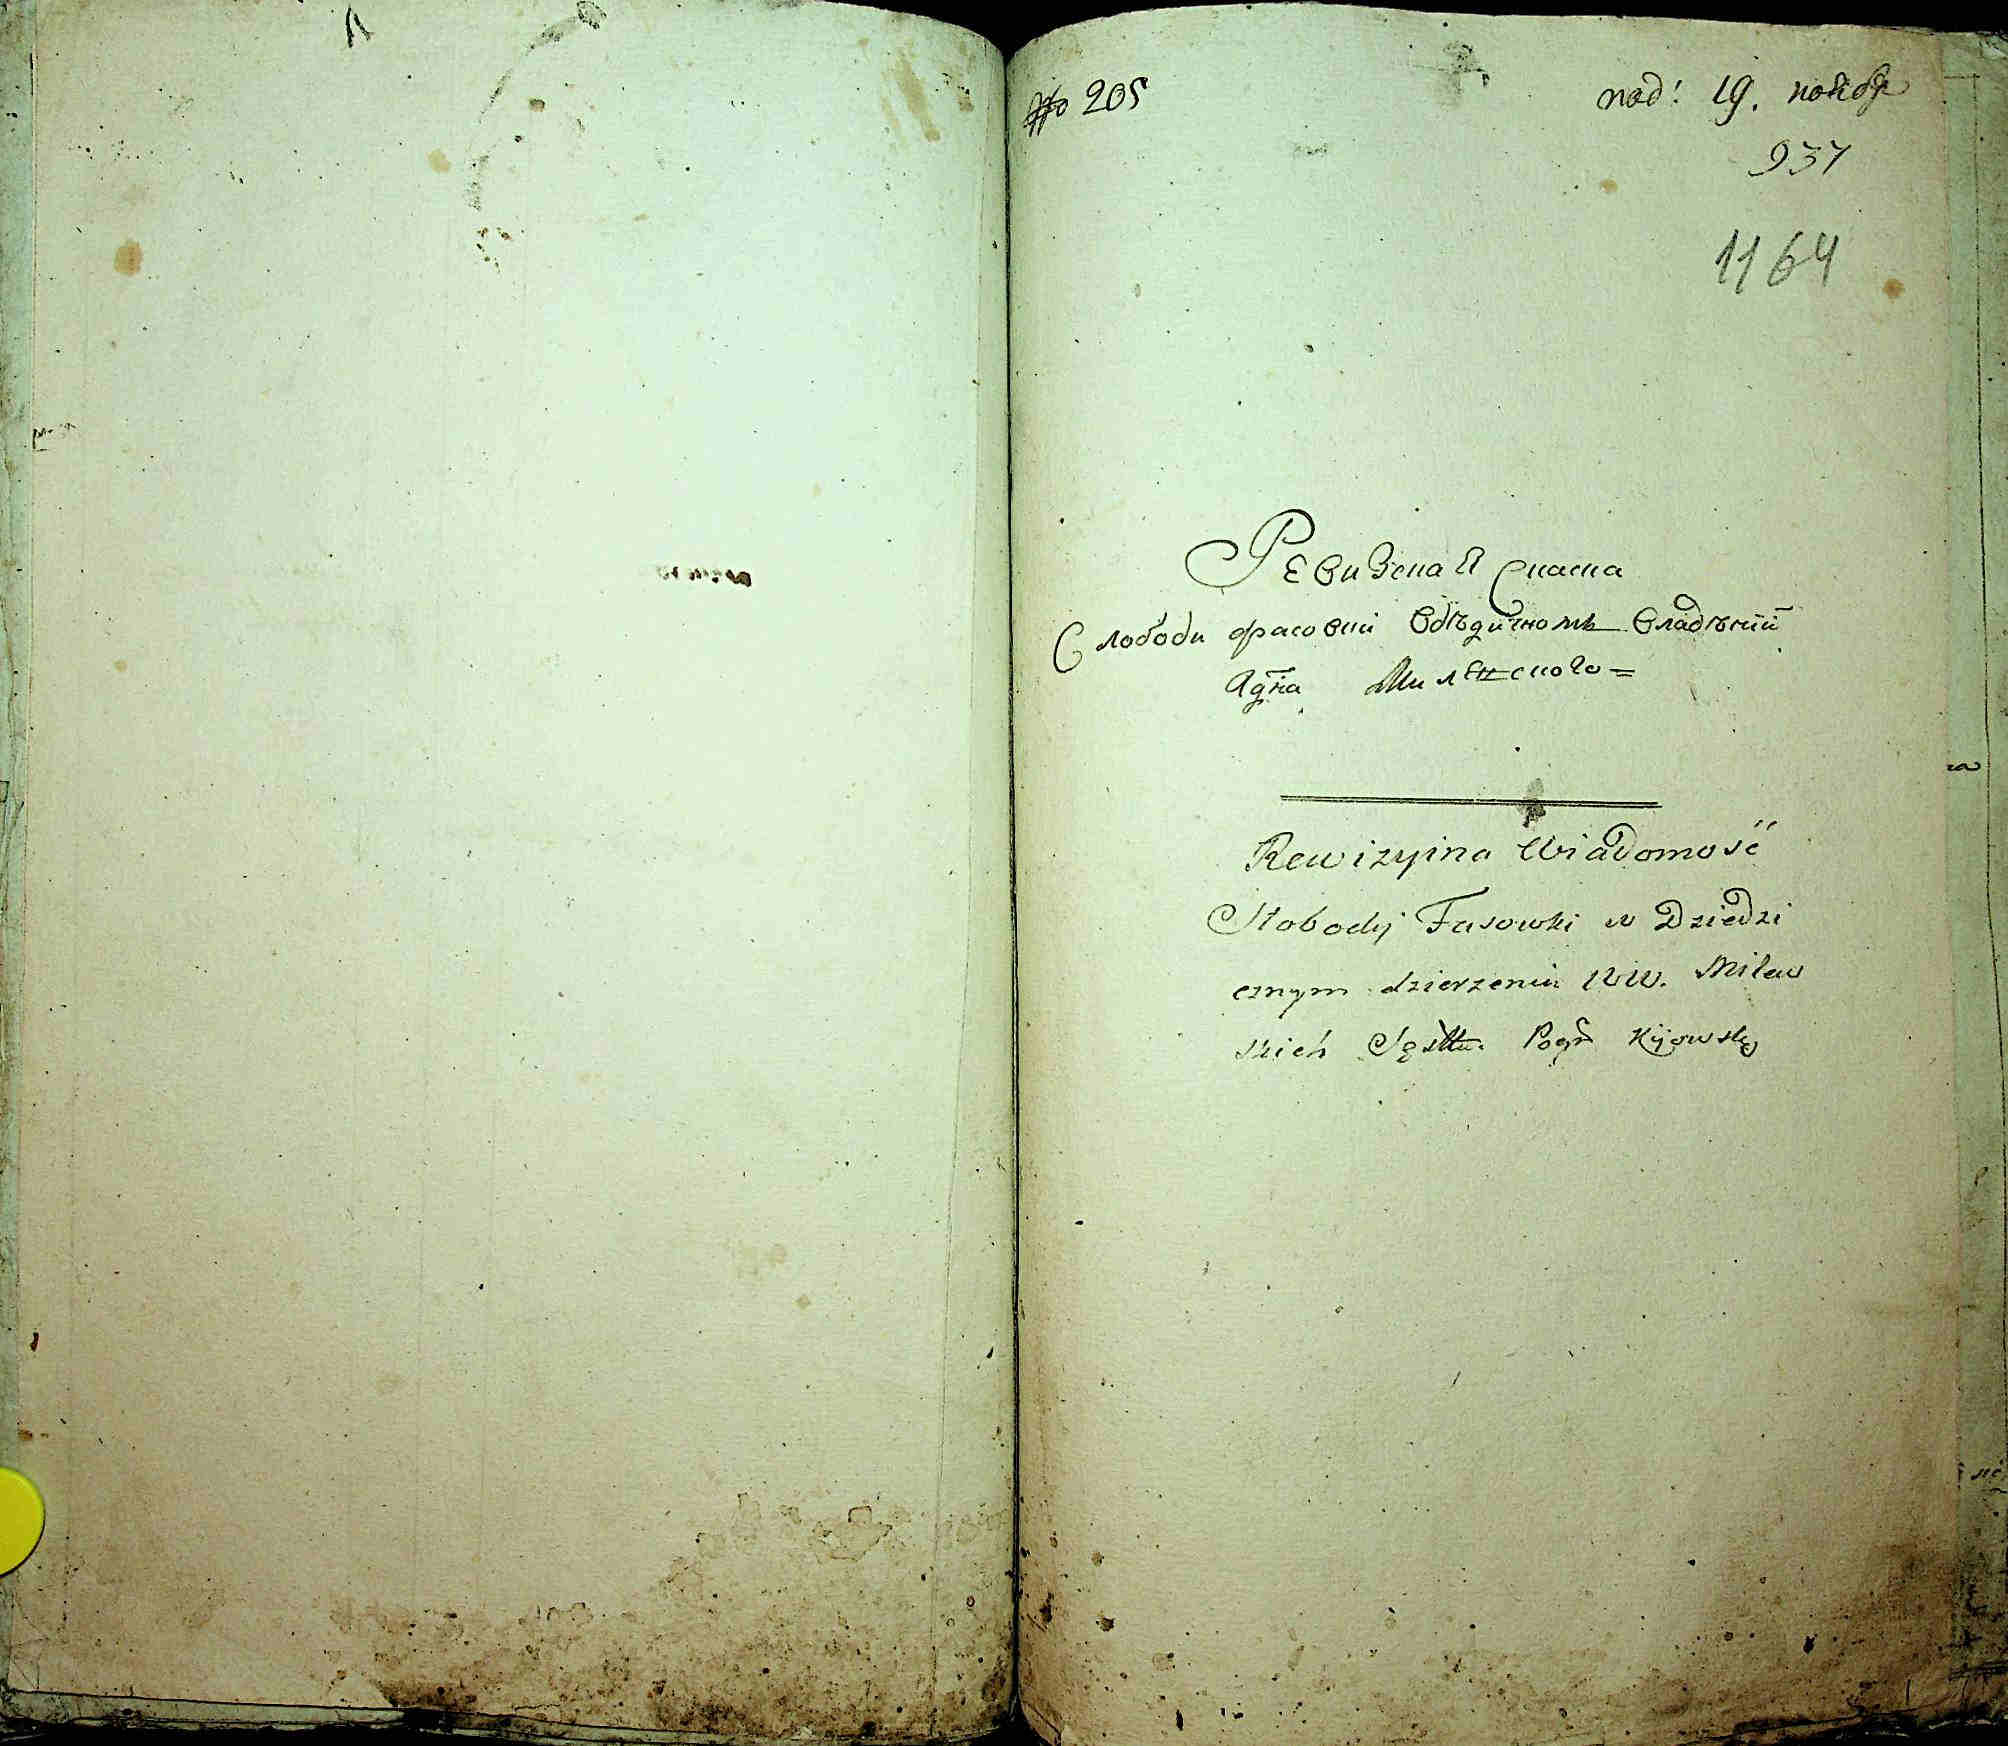 № 205
под: 19. ноябр
937
1164
Ревизская Сказка
Слободи Фасовки Вдѣдичномъ Владѣнïй
Миленского =
Rewizyina Wiadomość
Słobody Fasowki w Dziedzi
cznym dzierzeniu WW. Milew
skich Sęstw. Pogr. Kijowsk